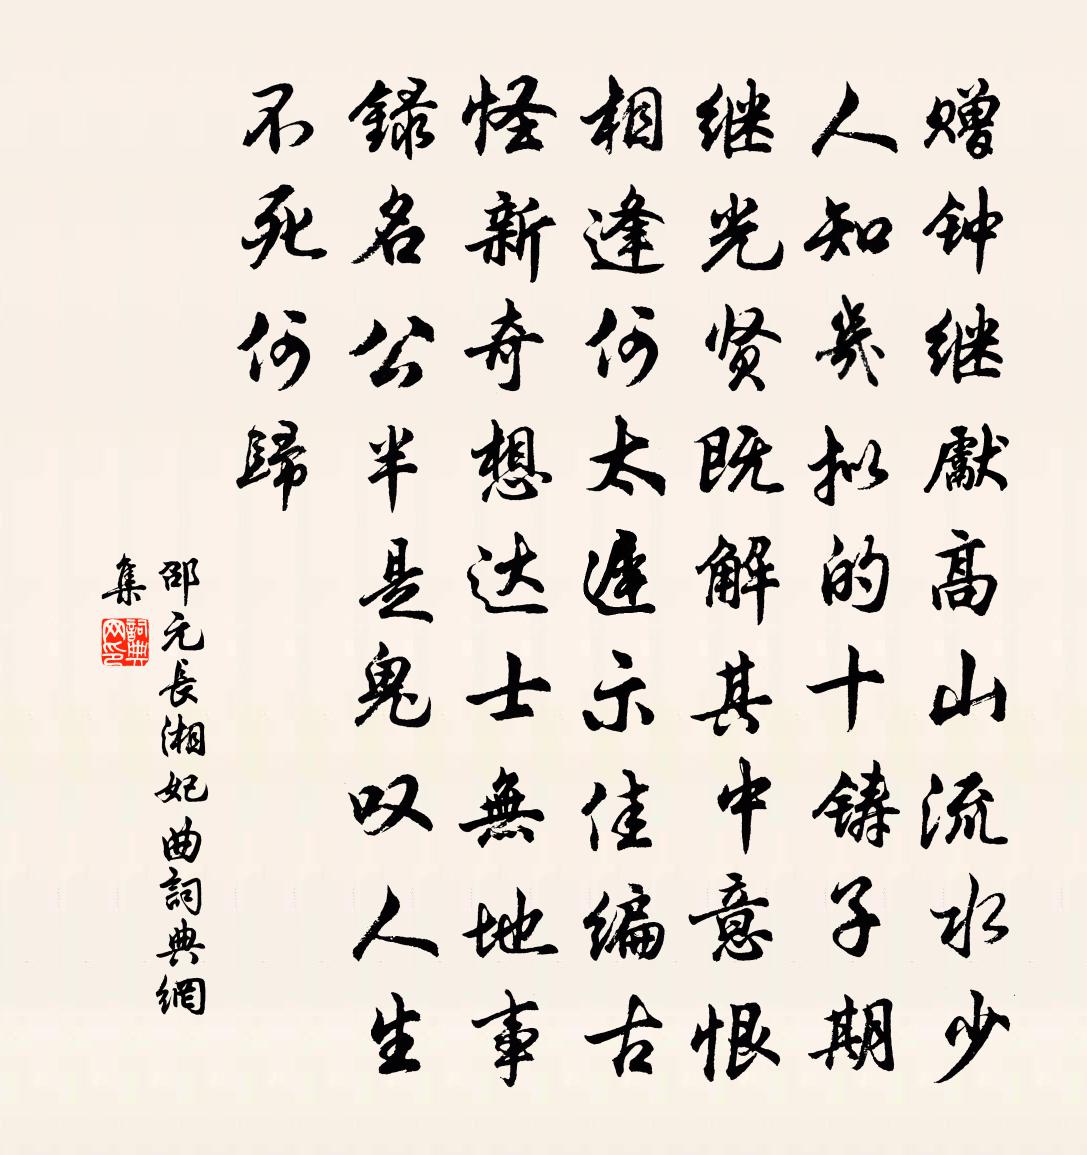 赠钟继獻高山流水少
人知幾拟的十铸子期
继光贤既解其中意恨
相逢何太遲示佳编古
怪新奇想达士無地事
録名公半是鬼叹人生
不死何歸
邵元長湘妃曲詞典網
集
詞典网印